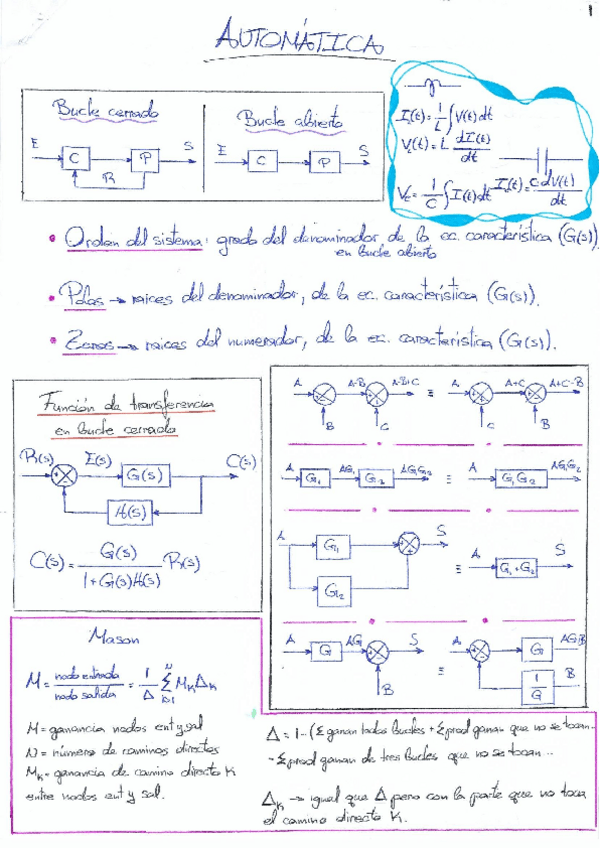 1
AUTOMÁTICA
Bucle cerrado
E
C
P
S
R
Bucle abierto
E
C
P
S
I(t) = 1/L ∫ V(t) dt
V(t) = L dI(t)/dt
V = 1/C ∫ I(t) dt
I(t) = C dV(t)/dt
• Orden del sistema: grado del denominador de la ec. característica (G(s))
en bucle abierto
• Polos → raices del denominador, de la ec. característica (G(s)).
• Zeros → raices del numerador, de la ec. característica (G(s)).
Función de transferencia
en bucle cerrado
R(s)
E(s)
G(s)
C(s)
H(s)
C(s) = G(s) / 1+G(s)H(s) R(s)
A
A-B
A-B+C
≡
A
A+C
A+C-B
B
C
C
B
A
G1
AG1
G2
AG1G2
≡
A
G1G2
AG1G2
A
G1
S
G2
≡
A
G1+G2
S
A
G
AG
S
B
≡
A
G
AG·B
1/G
B
Mason
M = nodo entrada / nodo salida = 1/Δ Σ Mk Δk
M = ganancia nodos ent y sal
N = número de caminos directos
Mk = ganancia de camino directo K
entre nodos ent y sal.
Δ = 1 - (Σ ganan todos bucles + Σ prod ganan que no se tocan
- Σ prod ganan de tres bucles que no se tocan...
Δk → igual que Δ pero con la parte que no toca
el camino directo K.